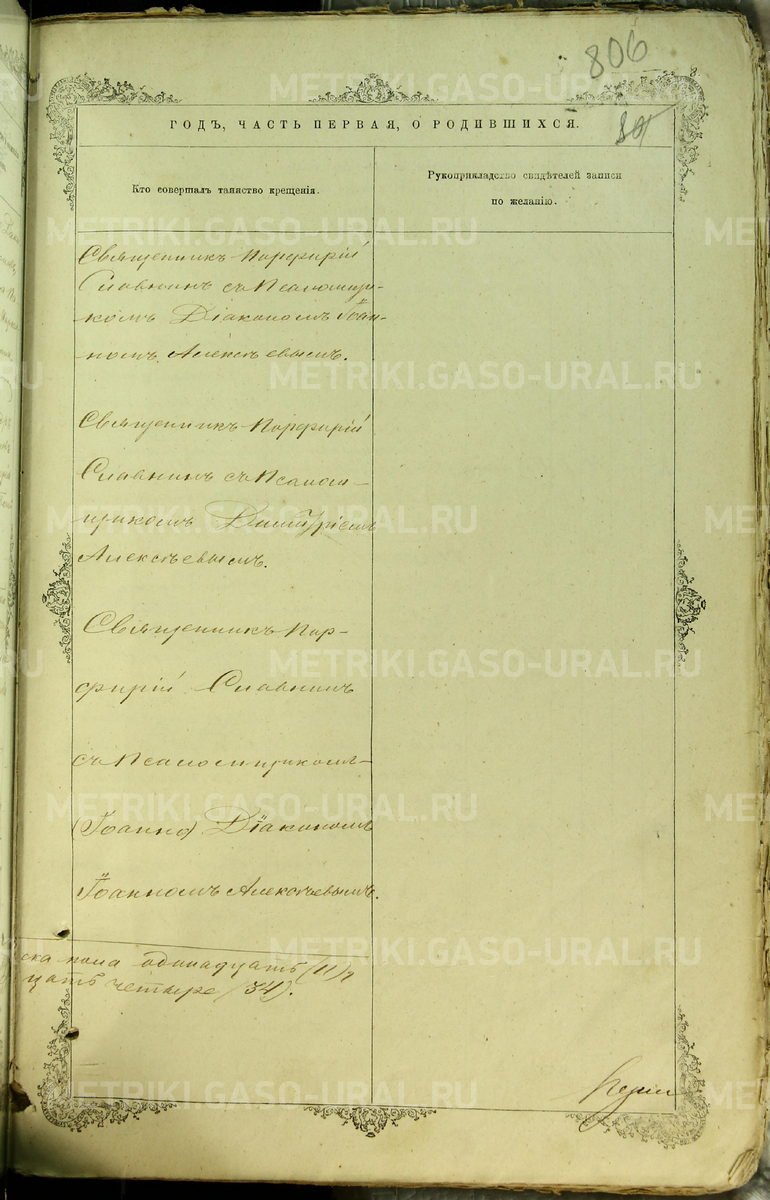 806
ГОДЪ, ЧАСТЬ ПЕРВАЯ, О РОДИВШИХСЯ.
Кто совершалъ таинство крещенія.
Рукоприкладство свидѣтелей записи
по желанію.
Священникъ Порфирій
Славнинъ съ Псаломщи-
комъ Діакономъ Іоан-
номъ Алексѣевымъ.
Священникъ Порфирій
Славнинъ съ Псалом-
щикомъ Димитріемъ
Алексѣевымъ.
Священникъ Пор-
фирій Славнинъ
съ Псаломщикомъ
(Іоанно) Діакономъ
Іоанномъ Алексѣевымъ.
ска пола одинадцать (11)
цать четыре (34).
METRIKI.GASO-URAL.RU